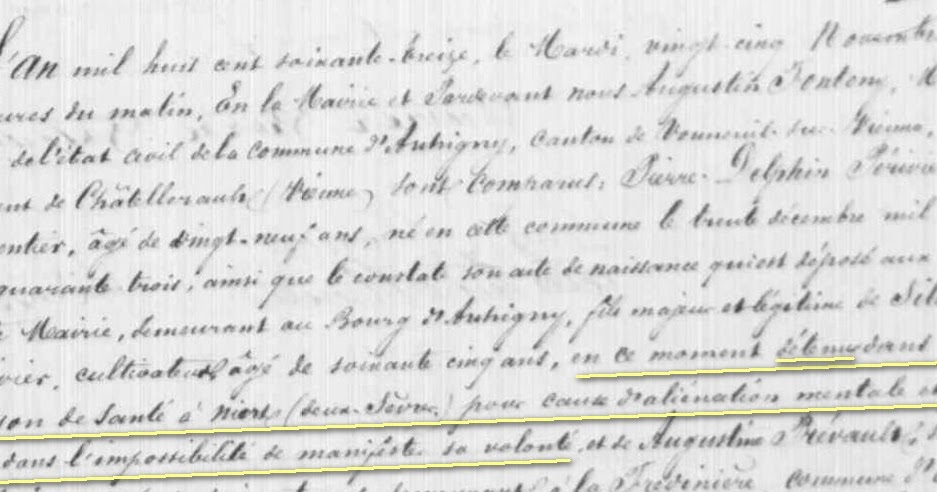 L'An mil huit cent soixante-treize, le Mardi, vingt-cinq Novembre
ures du matin, En la Mairie et Pardevant nous Augustin Fonteny, M
de l'état civil de la commune d'Antigny, canton de Vouneuil-sur-Vienne,
ent de Châtellerault (Vienne) sont comparus: Pierre-Delphin Périvie
entier, âgé de vingt-neuf ans, né en cette commune le trente décembre mil
quarante trois, ainsi que le constate son acte de naissance qui est déposé aux
Mairie, demeurant au Bourg d'Antigny, fils majeur et légitime de Sil
ivier, cultivateur, âgé de soixante cinq ans, en ce moment détenu dans
son de santé à Niort (deux-Sèvres) pour cause d'aliénation mentale et
dans l'impossibilité de manifester sa volonté, et de Augustine Prévault,
demeurant à la Frévinière commune d'